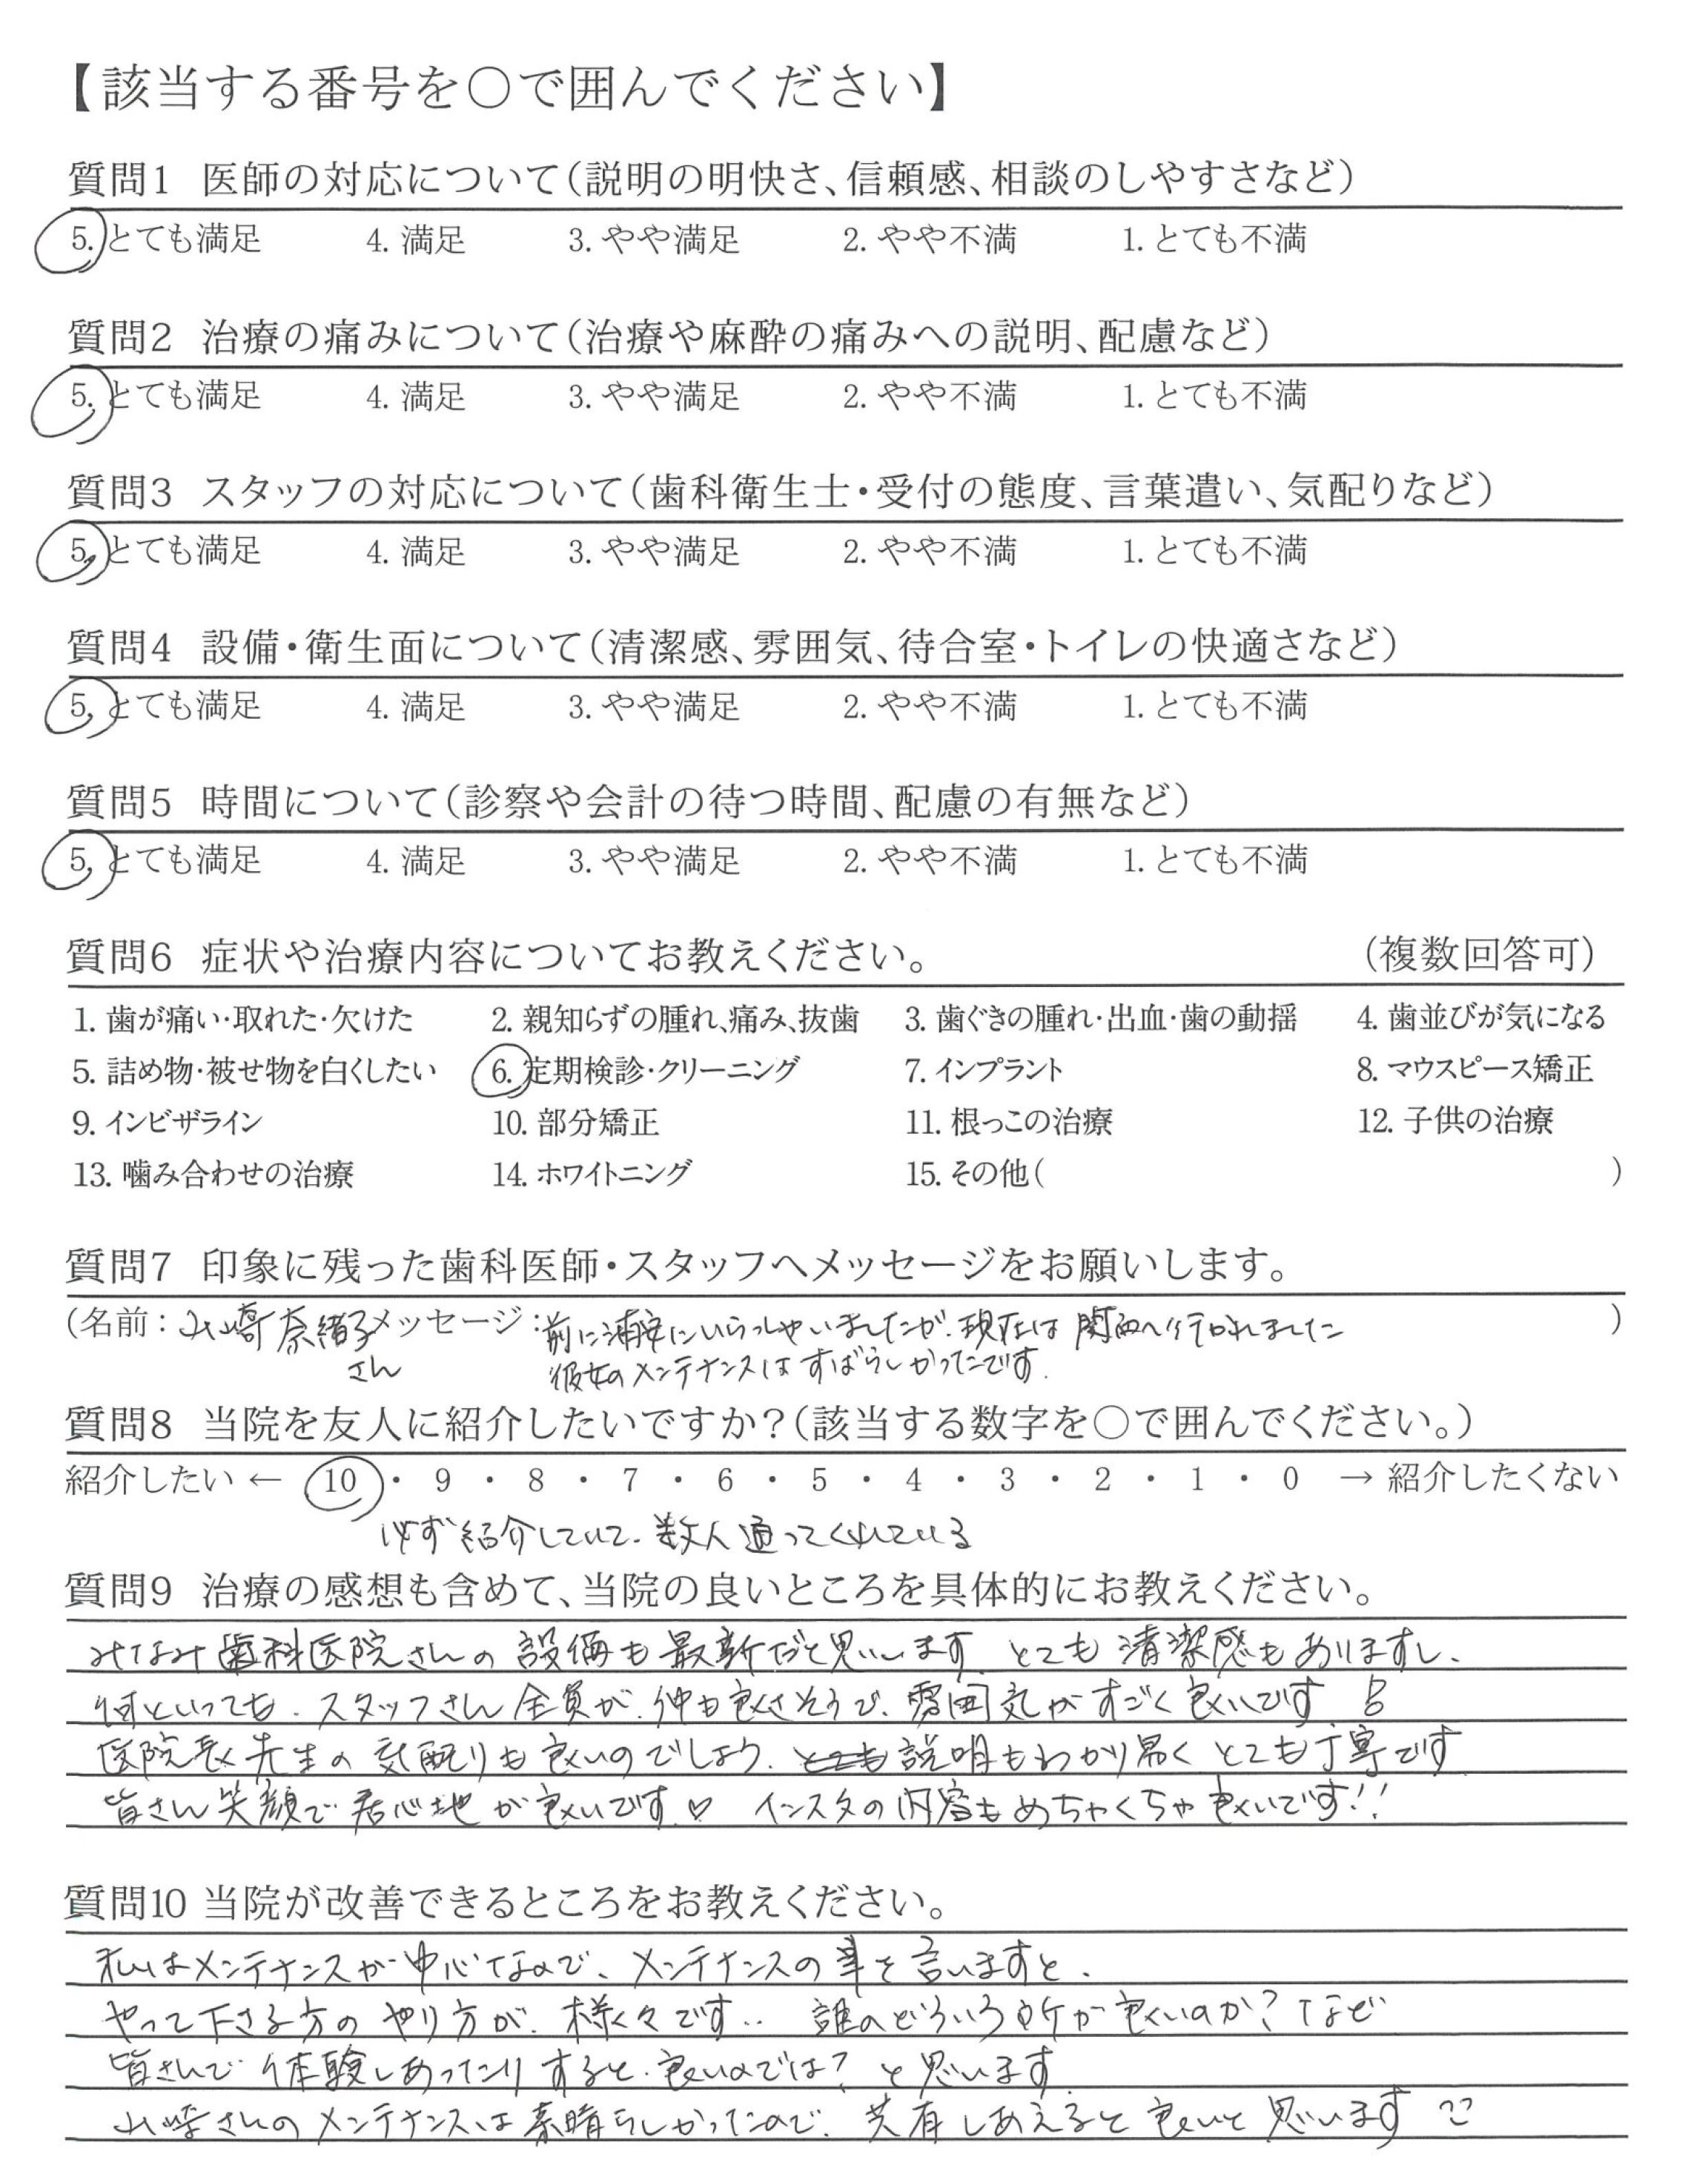 【該当する番号を○で囲んでください】
質問1 医師の対応について(説明の明快さ、信頼感、相談のしやすさなど)
5. とても満足 4. 満足 3. やや満足 2. やや不満 1. とても不満
質問2 治療の痛みについて(治療や麻酔の痛みへの説明、配慮など)
5. とても満足 4. 満足 3. やや満足 2. やや不満 1. とても不満
質問3 スタッフの対応について(歯科衛生士・受付の態度、言葉遣い、気配りなど)
5. とても満足 4. 満足 3. やや満足 2. やや不満 1. とても不満
質問4 設備・衛生面について(清潔感、雰囲気、待合室・トイレの快適さなど)
5. とても満足 4. 満足 3. やや満足 2. やや不満 1. とても不満
質問5 時間について(診察や会計の待つ時間、配慮の有無など)
5. とても満足 4. 満足 3. やや満足 2. やや不満 1. とても不満
質問6 症状や治療内容についてお教えください。 (複数回答可)
1. 歯が痛い・取れた・欠けた 2. 親知らずの腫れ、痛み、抜歯 3. 歯ぐきの腫れ・出血・歯の動揺 4. 歯並びが気になる
5. 詰め物・被せ物を白くしたい 6. 定期検診・クリーニング 7. インプラント 8. マウスピース矯正
9. インビザライン 10. 部分矯正 11. 根っこの治療 12. 子供の治療
13. 噛み合わせの治療 14. ホワイトニング 15. その他( )
質問7 印象に残った歯科医師・スタッフへメッセージをお願いします。
(名前: 山﨑奈緒子 メッセージ: 前に浦安にいらっしゃいましたが、現在は関西へ行かれました )
さん 彼女のメンテナンスはすばらしかったです.
質問8 当院を友人に紹介したいですか?(該当する数字を○で囲んでください。)
紹介したい ← 10 ・ 9 ・ 8 ・ 7 ・ 6 ・ 5 ・ 4 ・ 3 ・ 2 ・ 1 ・ 0 → 紹介したくない
必ず紹介していて、数人通ってくれている
質問9 治療の感想も含めて、当院の良いところを具体的にお教えください。
みなみ歯科医院さんの設備も最新だと思います、とても清潔感もありますし、
何といっても、スタッフさん全員が、仲も良さそうで、雰囲気がすごく良いです
医院長先生の気配りも良いのでしょう、説明もわかり易くとても丁寧です
皆さん笑顔で居心地が良いです♡ インスタの内容もめちゃくちゃ良いです!!
質問10 当院が改善できるところをお教えください。
私はメンテナンスが中心なので、メンテナンスの事を言いますと、
やって下さる方のやり方が、様々です.. 誰のどういう所が良いのか?など
皆さんで体験しあったりすると、良いのでは?と思います
山﨑さんのメンテナンスは素晴らしかったので、共有しあえると良いと思います